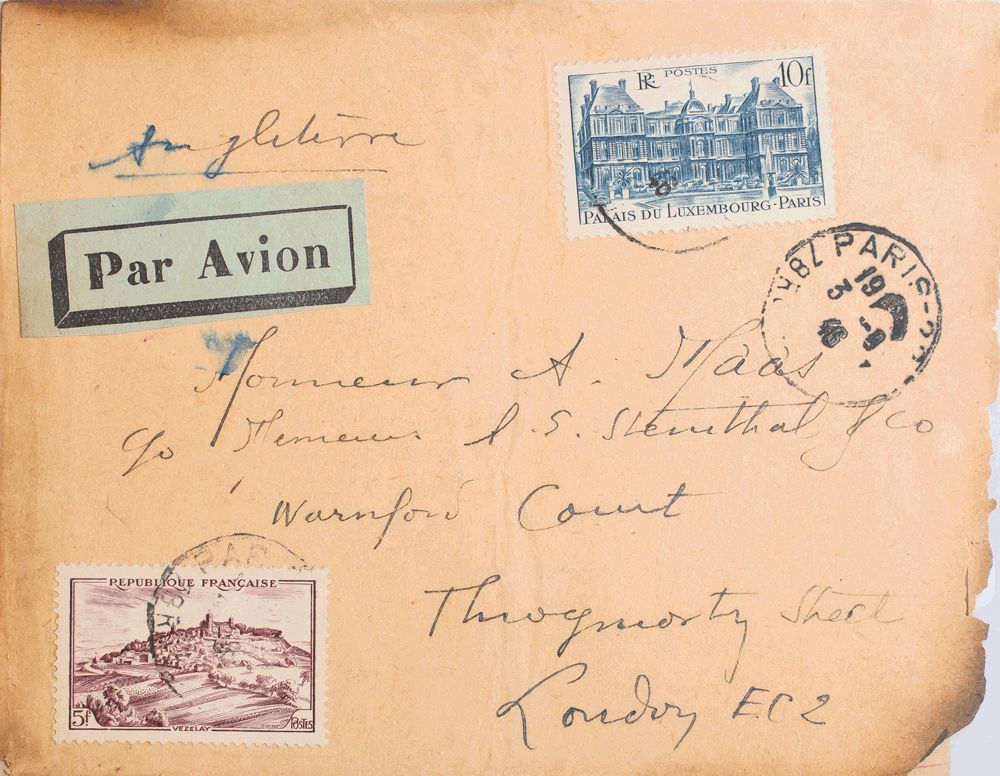 RF POSTES 10f
PALAIS DU LUXEMBOURG-PARIS
Angleterre
Par Avion
PARIS
19
3
46
Monsieur A. Maas
c/o Messieurs S. Sternthal & Co
Warnford Court
Throgmorty Street
London EC2
REPUBLIQUE FRANÇAISE
5f VEZELAY POSTES